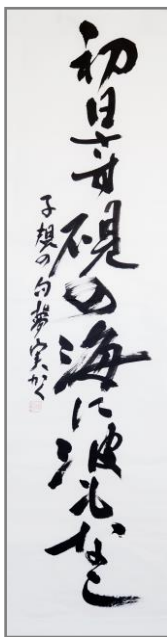 初日さす硯の海に波もなし
子規の句 夢実かく